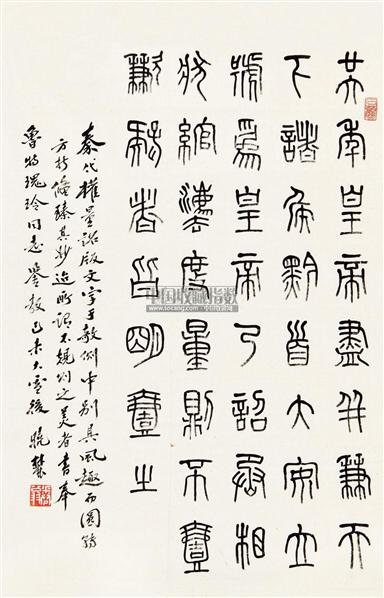 廿六年皇帝盡并兼天
下諸侯黔首大安立
號爲皇帝乃詔丞相
狀綰灋度量則不壹
歉疑者皆明壹之
秦代權量詔版文字于例中別具風趣而圓
方折臻其妙迨所謂不規則之美者書奉
魯瑰玲同志教己未大雪後
中国收藏指数
www.socang.com